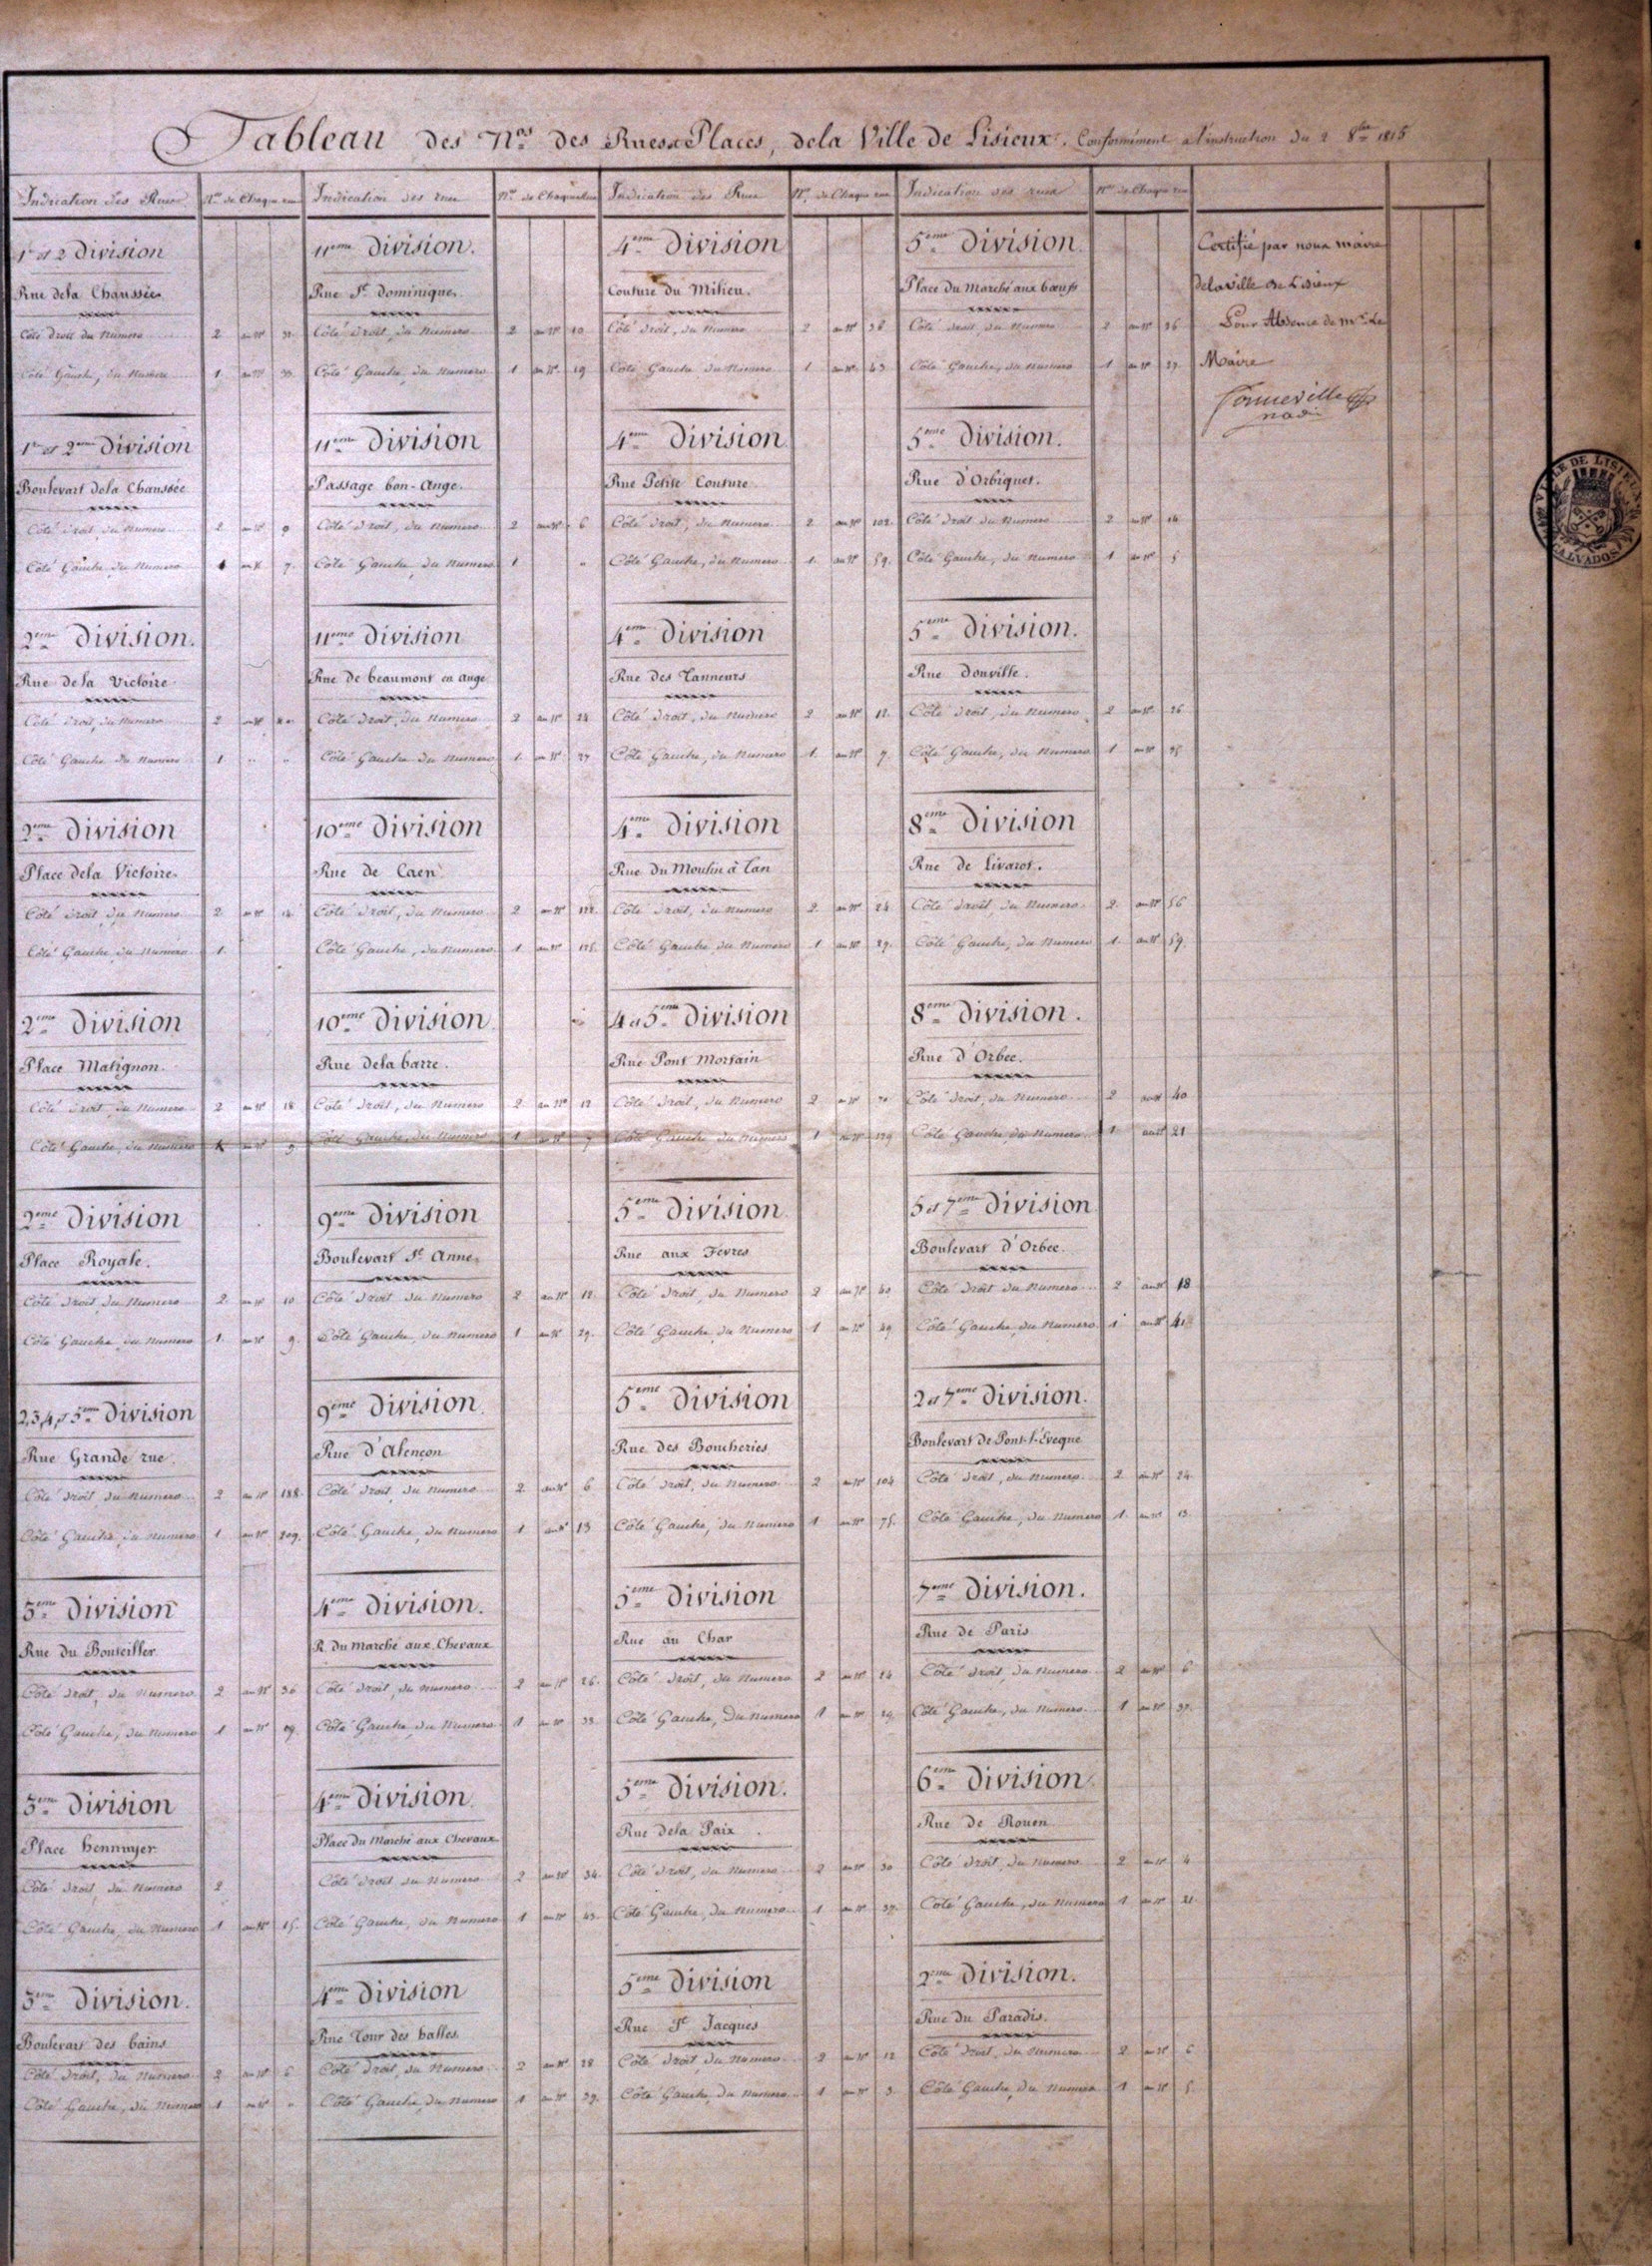 Tableau des Nos. des Rues & Places, de la Ville de Lisieux. Conformément a l'instruction du 2 8bre 1815
Indication des Rues
Nos de Chaque rue
1re et 2 Division
Rue de la Chaussée
Côté droit du Numero 2 au No
Côté Gauche, du Numero 1 au No
1re et 2eme Division
Boulevart de la Chaussée
Côté droit, du Numero 2 au No
Côté Gauche, du Numero 1 au No 7.
2eme Division.
Rue de la Victoire
Côté droit, du Numero 2 au No
Côté Gauche du Numero 1
2eme Division
Place de la Victoire
Côté droit, du Numero 2 au No
Côté Gauche, du Numero 1.
2eme Division
Place Matignon.
Côté droit, du Numero 2 au No 18
Côté Gauche, du Numero au No 9
2eme Division
Place Royale.
Côté droit, du Numero 2 au No 10
Côté Gauche, du Numero 1. au No 9.
2,3,4, et 5eme Division
Rue Grande rue.
Côté droit, du Numero 2 au No 188.
Côté Gauche, du Numero 1 au No 209.
3eme Division
Rue du Bouteiller
Côté droit, du Numero 2 au No 36
Côté Gauche, du Numero 1 au No
3eme Division
Place hennuyer
Côté droit, du Numero 2
Côté Gauche, du Numero 1 au No 15.
3eme Division.
Boulevart des bains
Côté droit, du Numero 2 au No 6
Côté Gauche, du Numero 1 au No
Indication des rues
Nos de Chaque Rue
11eme Division.
Rue St. Dominique.
Côté droit, du Numero 2 au No 10
Côté Gauche, du Numero 1 au No. 19
11eme Division
Passage bon-Ange.
Côté droit, du Numero 2 au No 6
Côté Gauche, du Numero 1
11eme Division
Rue de beaumont en auge
Côté droit, du Numero 2 au No 24
Côté Gauche du Numero 1 au No 27
10eme Division
Rue de Caen
Côté droit, du Numero 2 au No
Côté Gauche, du Numero 1 au No 125.
10eme Division
Rue de la barre.
Côté droit, du Numero 2 au No 12
Côté Gauche, du Numero 1 au No 7
9eme Division
Boulevart Ste Anne
Côté droit du Numero 2 au No 12.
Côté Gauche, du Numero 1 au No 29.
9eme Division
Rue d'Alençon
Côté droit, du Numero 2 au No 6
Côté Gauche, du Numero 1 au No 13
4eme Division.
R. du marché aux Chevaux
Côté droit, du Numero 2 au No 26.
Côté Gauche du Numero 1 au No 33
4eme Division
Place du Marché aux Chevaux
Côté droit du Numero 2 au No 34.
Côté Gauche, du Numero 1 au No 43.
4eme Division
Rue Tour des halles
Côté droit, du Numero 2 au No 28
Côté Gauche, du Numero 1 au No 39.
Indication des Rues
Nos de Chaque rue
4eme Division
Couture du Milieu.
Côté droit, du Numero 2 au No 38
Côté Gauche du Numero 1 au No 43
4eme Division
Rue Petite Couture
Côté droit, du Numero 2 au No 102.
Côté Gauche, du Numero 1. au No 59.
4eme Division
Rue des Tanneurs
Côté droit, du Numero 2 au No 12.
Côté Gauche, du Numero 1. au No 7.
4eme Division
Rue du Moulin à Tan
Côté droit, du Numero 2 au No 24
Côté Gauche du Numero 1 au No 29.
4 et 5eme Division
Rue Pont Mortain
Côté droit, du Numero 2 au No
Côté Gauche, du Numero 1 au No 129
5eme Division
Rue aux Fevres
Côté droit, du Numero 2 au No 40
Côté Gauche, du Numero 1 au No 49
5eme Division
Rue des Boucheries
Côté droit, du Numero 2 au No 104
Côté Gauche, du Numero 1 au No 75.
5eme Division
Rue au Char
Côté droit, du Numero 2 au No 24
Côté Gauche, Du Numero 1 au No 29.
5eme Division.
Rue de la Paix
Côté droit, du Numero 2 au No 30
Côté Gauche, du Numero 1 au No 37.
5eme Division
Rue St Jacques
Côté droit, du Numero 2 au No 12
Côté Gauche, du Numero 1 au No 3.
Indication des rues
Nos de Chaque rue
5eme Division.
Place du Marché aux bœufs
Côté droit, du Numero 2 au No 36
Côté Gauche, du Numero 1 au No 27.
5eme Division.
Rue d'Orbiquet.
Côté droit du Numero 2 au No 14
Côté Gauche, du Numero 1 au No 5
5eme Division.
Rue Douville.
Côté droit, du Numero 2 au No 26
Côté Gauche, du Numero 1 au No
8eme Division
Rue de Livarot.
Côté droit, du Numero 2. au No 56
Côté Gauche, du Numero 1. au No 59.
8eme Division.
Rue d'Orbec.
Côté droit, du Numero 2 au No 40
Côté Gauche, du Numero 1 au No 21
5 et 7eme Division
Boulevart d'Orbec.
Côté droit du Numero 2 au No 18
Côté Gauche, du Numero 1 au No
2 et 7eme Division.
Boulevart de Pont-l'Eveque
Côté droit, du Numero 2 au No 24.
Côté Gauche, du Numero 1. au No 13.
7eme Division.
Rue de Paris
Côté droit, du Numero 2 au No 6
Côté Gauche, du Numero 1 au No 37.
6eme Division.
Rue de Rouen
Côté droit, du Numero 2 au No 4
Coté Gauche, du Numero 1 au No 21.
2eme Division.
Rue du Paradis.
Côté droit, du Numero 2 au No 6
Côté Gauche, du Numero 1 au No 5.
Certifié par nous maire
de la ville de Lisieux
Pour Absence de mr. Le
Maire
VILLE DE LISIEUX
CALVADOS